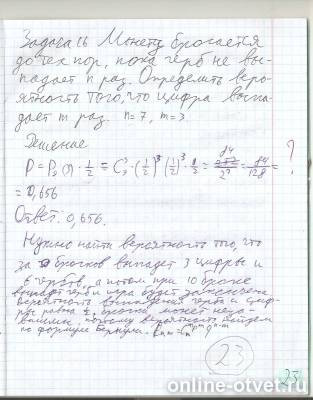 Задача 16 Монета бросается
до тех пор, пока герб не вы-
падает n раз. Определить веро-
ятность того, что цифра выпа-
дает m раз. n=7, m=3
Решение
P = P₉(3) · 1/2 = C₉³ · (1/2)³ · 1/2 = 84/2⁷ = 84/128 = ?
= 0,656
Ответ: 0,656.
Нужно найти вероятность того, что
за бросков выпадет 3 цифры и
6 гербов, а потом при 10 броске
выпадет герб и игра будет закончена
вероятность выпадения герба и циф-
ры равна 1/2, броски может неза-
висимы поэтому вероятность найдем
по формуле Бернули.
23
23
online-otvet.ru